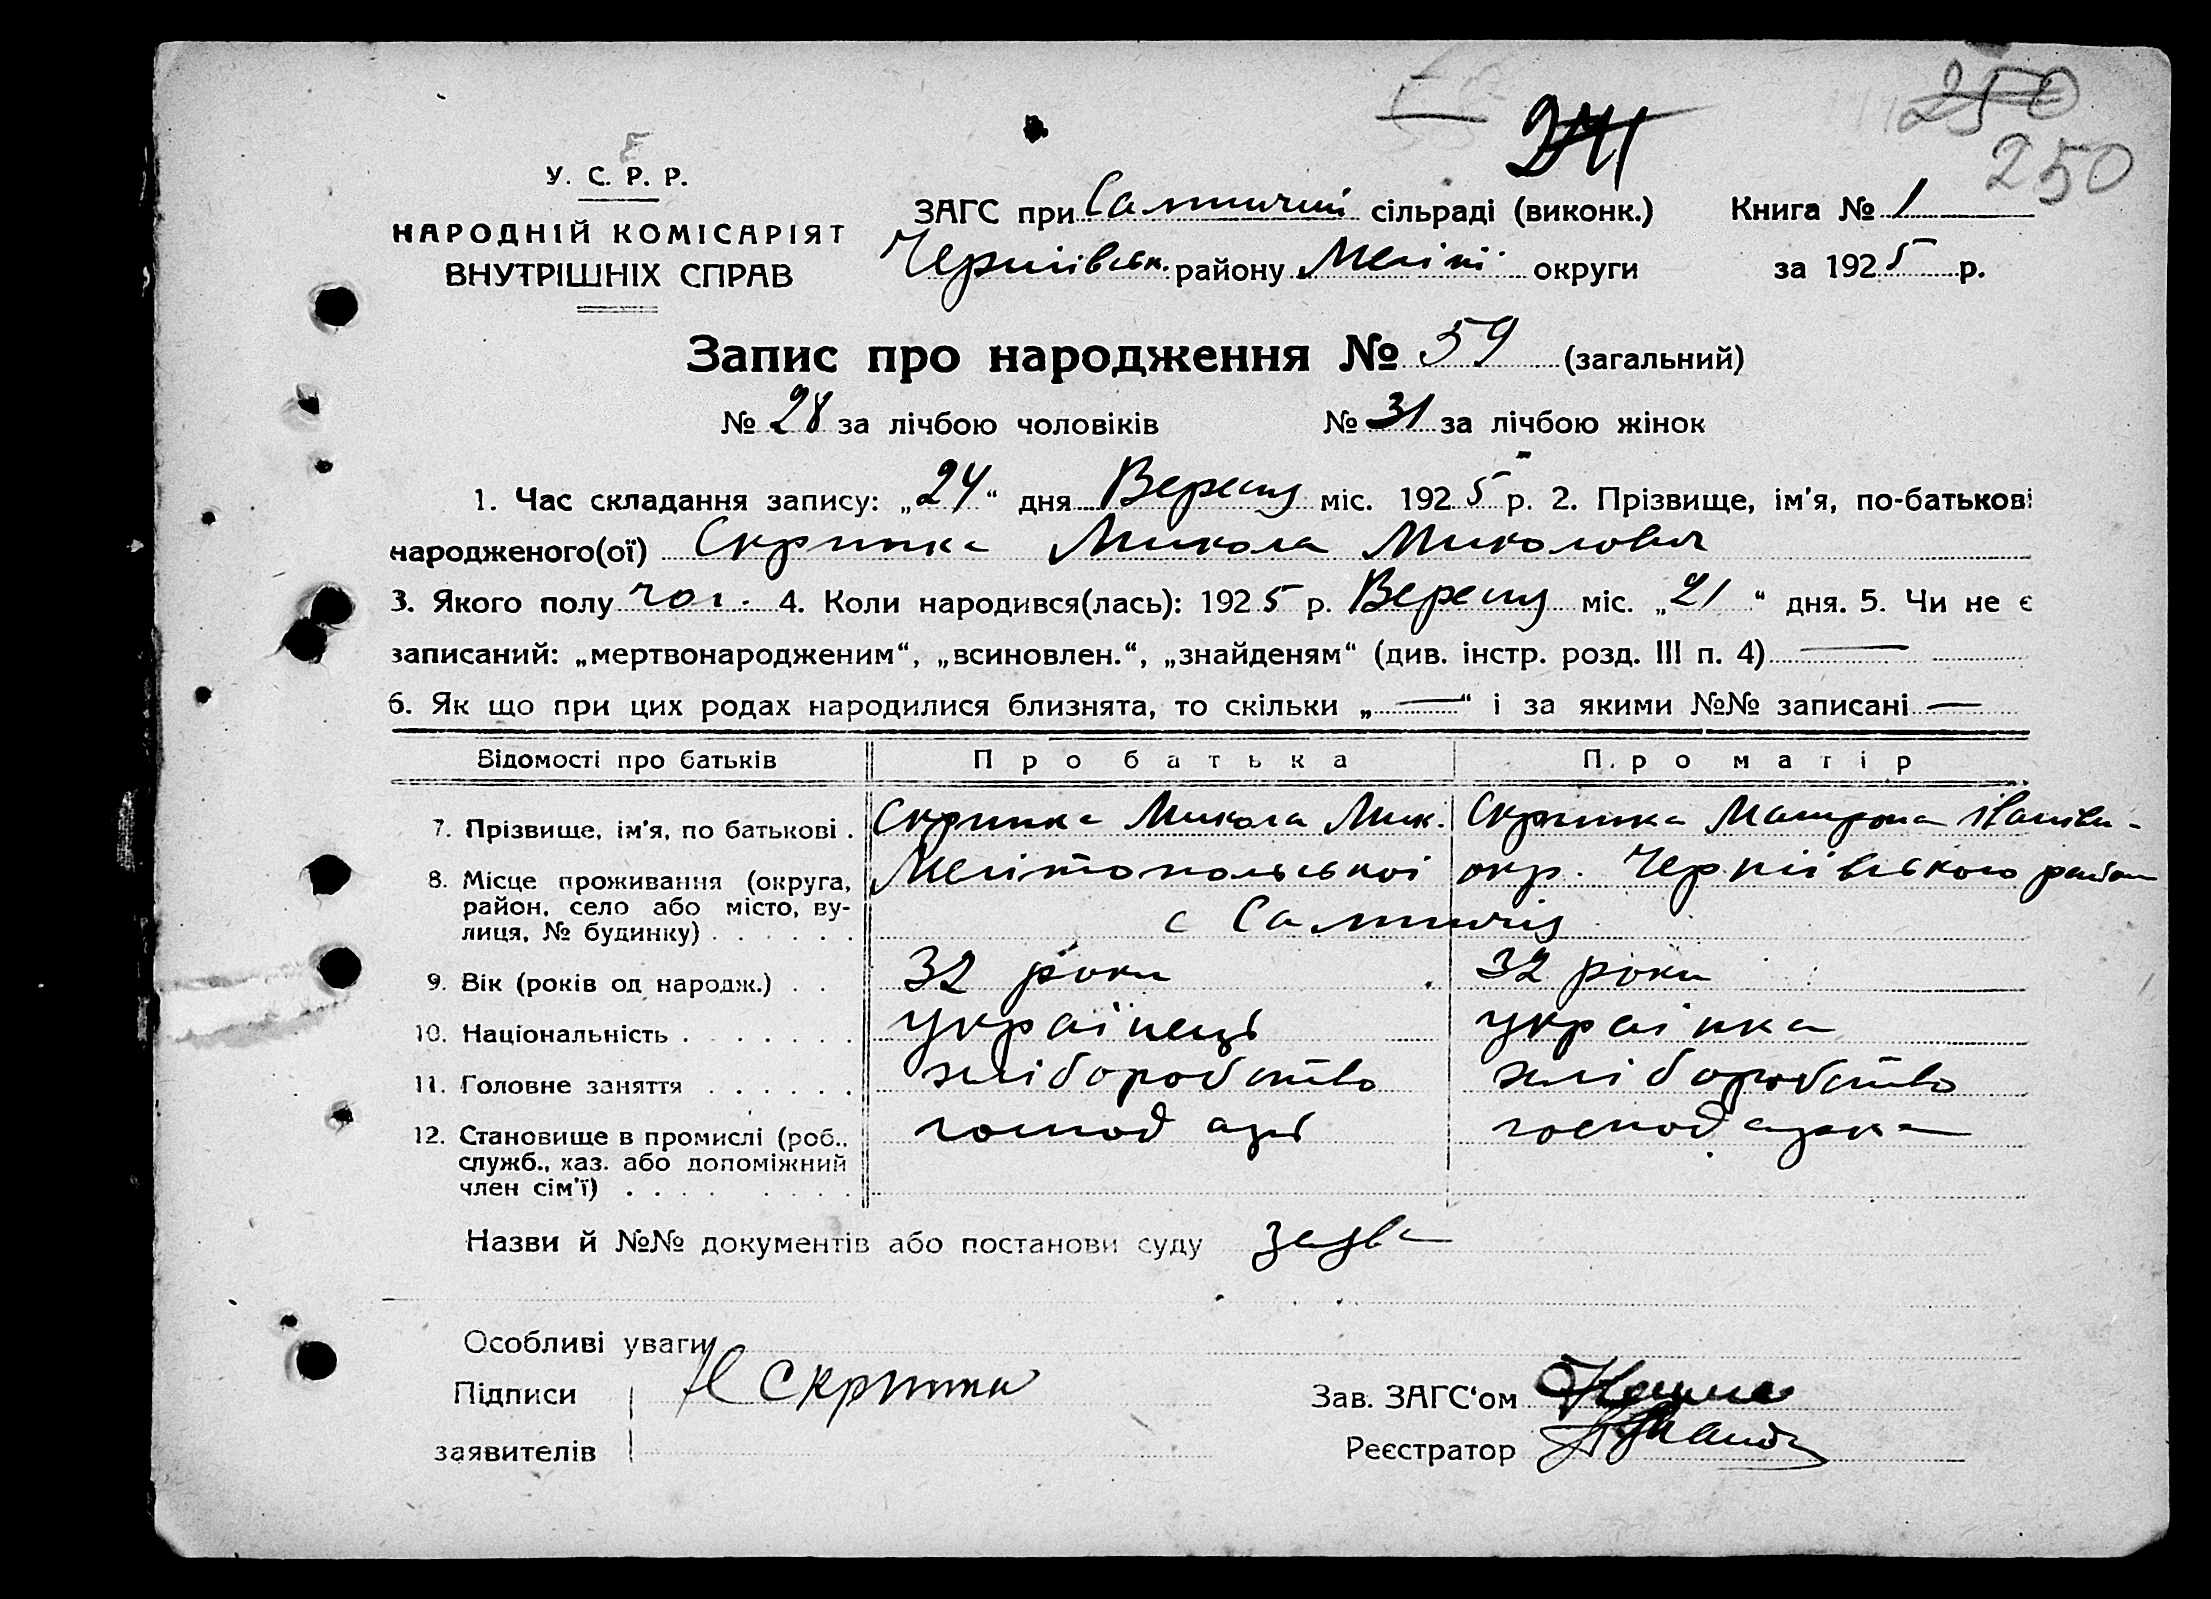 250
250
У. С. Р. Р.
НАРОДНІЙ КОМІСАРІЯТ
ВНУТРІШНІХ СПРАВ
ЗАГС при Салтичій сільраді (виконк.) Книга № 1
Чернігівськ. району Меліт. округи за 1925 р.
Запис про народження № 59 (загальний)
№ 28 за лічбою чоловіків № 31 за лічбою жінок
1. Час складання запису: „24“ дня Вересня міс. 1925 р. 2. Прізвище, ім'я, по-батькові
народженого(ої) Скрипка Микола Миколович
3. Якого полу чол. 4. Коли народився(лась): 1925 р. Вересня міс. „21“ дня. 5. Чи не є
записаний: „мертвонародженим“, „всиновлен.“, „знайденям“ (див. інстр. розд. III п. 4) —
6. Як що при цих родах народилися близнята, то скільки „—“ і за якими №№ записані —
Відомості про батьків Про батька Про матір
7. Прізвище, ім'я, по батькові . Скрипка Микола Мик. Скрипка Мотрона
8. Місце проживання (округа, Мелітопольської окр. Чернігівського район
район, село або місто, ву- с Салтичія
лиця, № будинку) . . . . . .
9. Вік (років од народж.) . . 32 роки 32 роки
10. Національність . . . . . . . українець українка
11. Головне заняття . . . . . . хліборобство хліборобство
12. Становище в промислі (роб., господарь господарка
служб., хаз. або допоміжний
член сім'ї) . . . . . . . .
Назви й №№ документів або постанови суду заява
Особливі уваги
Підписи Н Скрипка Зав. ЗАГС'ом
заявителів Реєстратор